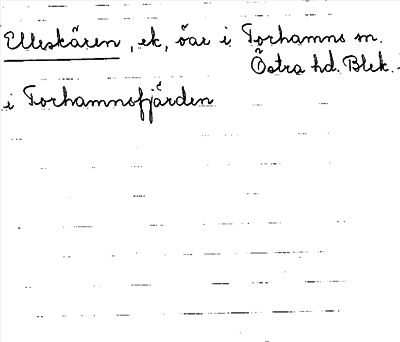 Elleskären, ek, öar i Torhamns sn.
Östra hd. Blek.
i Torhamnsfjärden